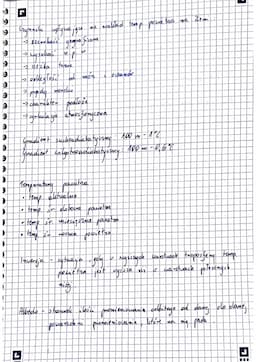 Czynniki wpływające na rozkład temp. powietrza na Ziemi
→ szerokość geograficzna
→ wysokość n.p.m
→ rzeźba terenu
→ odległość od mórz i oceanów
→ prądy morskie
→ charakter podłoża
→ cyrkulacja atmosferyczna
Gradient suchoadiabatyczny 100 m - 1°C
Gradient wilgotnoadiabatyczny 100 m - 0,6°C
Temperatury powietrza
• temp. aktualna
• temp. śr. dobowa powietrza
• temp. śr. miesięczna powietrza
• temp. śr. roczna powietrza
Inwersja - sytuacja gdy w wyższych warstwach troposfery temp.
powietrza jest wyższa niż w warstwach położonych
niżej
Albedo - stosunek ilości promieniowania odbitego od danej
powierzchni promieniowania, które na nią pada